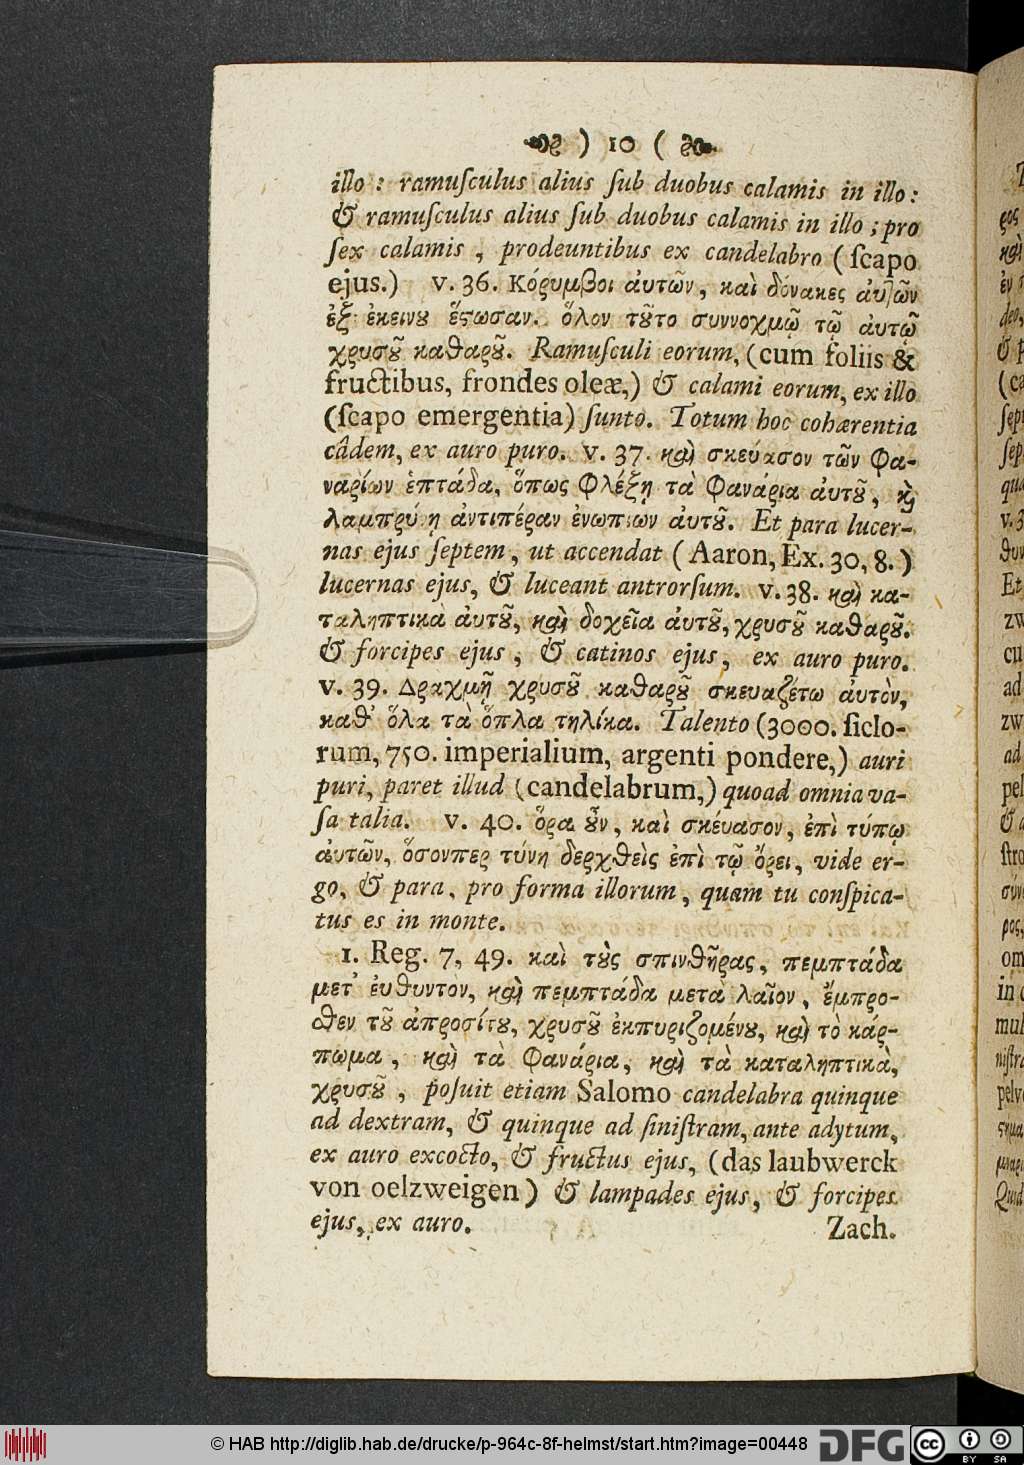 ) 10 (
illo : ramuſculus alius ſub duobus calamis in illo :
& ramuſculus alius ſub duobus calamis in illo ; pro
ſex calamis , prodeuntibus ex candelabro (ſcapo
ejus.) v. 36. Κόρυμβοι ἀυτῶν, καὶ δόνακες ἀυτῶν
ἐξ ἐκεινου ἔστωσαν. ὅλον τοῦτο συννοχμῷ τῷ ἀυτῷ
χρυσοῦ καθαροῦ. Ramuſculi eorum, (cum foliis &
fructibus, frondes oleæ,) & calami eorum, ex illo
(ſcapo emergentia) ſunto. Totum hoc cohærentia
câdem, ex auro puro. v. 37. καὶ σκεύασον τῶν Φα-
ναρίων ἑπτάδα, ὅπως Φλέξῃ τὰ Φανάρια ἀυτοῦ, καὶ
λαμπρύ η ἀντιπέραν ἐνωπιων ἀυτοῦ. Et para lucer-
nas ejus ſeptem, ut accendat (Aaron, Ex. 30, 8.)
lucernas ejus, & luceant antrorſum. v. 38. καὶ κα-
ταληπτικὰ ἀυτοῦ, καὶ δοχεῖα ἀυτοῦ, χρυσοῦ καθαροῦ.
& forcipes ejus , & catinos ejus, ex auro puro.
v. 39. Δραχμῇ χρυσοῦ καθαροῦ σκευαζέτω ἀυτὸν,
καθ' ὅλα τὰ ὅπλα τηλίκα. Talento (3000. ſiclo-
rum, 750. imperialium, argenti pondere,) auri
puri, paret illud (candelabrum,) quoad omnia va-
ſa talia. v. 40. ὅρα οὖν, καὶ σκέυασον, ἐπὶ τύπῳ
ἀυτῶν, ὅσονπερ τύνη δερχθεὶς ἐπὶ τῷ ὄρει, vide er-
go, & para, pro forma illorum, quam tu conſpica-
tus es in monte.
1. Reg. 7, 49. καὶ τοὺς σπινθῆρας, πεμπτάδα
μετ' ἐυθυντον, καὶ πεμπτάδα μετὰ λαῖον, ἔμπρο-
σθεν τοῦ ἀπροσίτου, χρυσοῦ ἐκπυριζομένου, καὶ τὸ κάρ-
πωμα, καὶ τὰ Φανάρια, καὶ τὰ καταληπτικὰ,
χρυσοῦ , poſuit etiam Salomo candelabra quinque
ad dextram, & quinque ad ſiniſtram, ante adytum,
ex auro excocto, & fructus ejus, (das laubwerck
von oelzweigen) & lampades ejus, & forcipes
ejus, ex auro.
Zach.
© HAB http://diglib.hab.de/drucke/p-964c-8f-helmst/start.htm?image=00448
DFG
cc BY SA